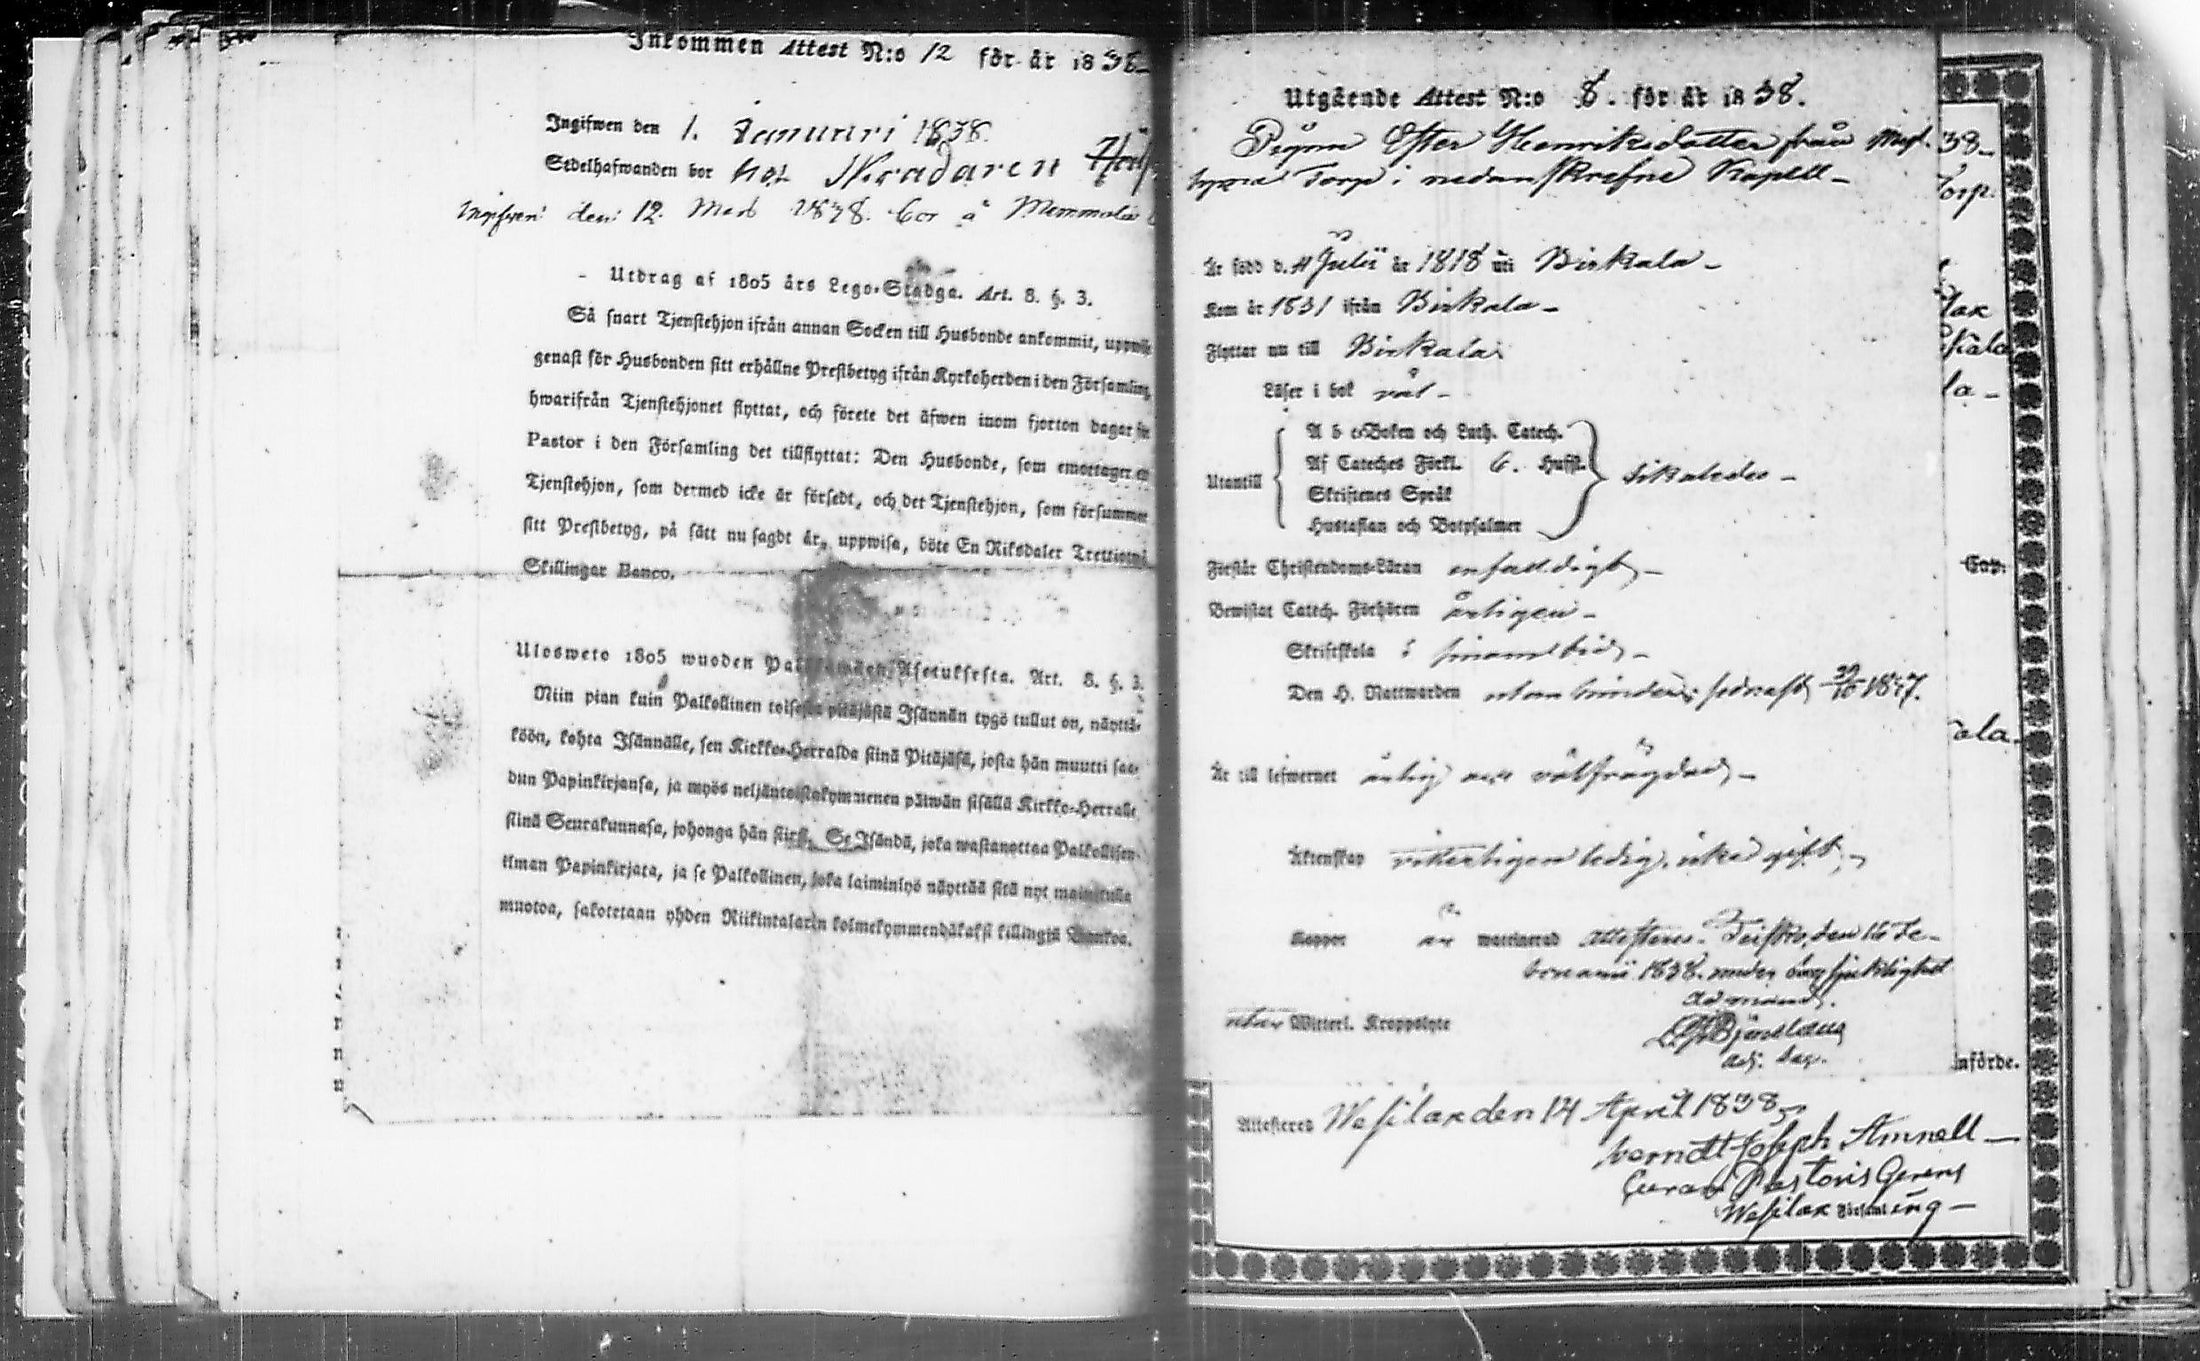 Inkommen Attest N:o 12 för år 1838
Ingifwen den 1. Januari 1838.
Sedelhafwanden bor hos Skradaren
den 12. 1838. bor å
Utdrag af 1805 års Lego-Stadga. Art. 8. §. 3.
Så snart Tjenstehjon ifrån annan Socken till Husbonde ankommit, uppwise
genast för Husbonden sitt erhållne Prestbetyg ifrån Kyrkoherden i den Församling,
hwarifrån Tjenstehjonet flyttat, och förete det äfwen inom fjorton dagar för
Pastor i den Församling det tillflyttat: Den Husbonde, som emottager en
Tjenstehjon, som dermed icke är försedt, och det Tjenstehjon, som försummer
sitt Prestbetyg, på sätt nu sagdt är, uppwisa, böte En Riksdaler Trettiotwå
Skillingar Banco.
Ulosweto 1805 wuoden Palkkawäen Asetuksesta. Art. 8. §. 3.
Niin pian kuin Palkollinen toisesta pitäjästä Isännän tygö tullut on, näyttä-
köön, kohta Isännälle, sen Kirkko-Herralda siinä Pitäjäsä, josta hän muutti saa-
dun Papinkirjansa, ja myös neljäntoistakymmenen päiwän sisällä Kirkko-Herralle
siinä Seurakunnasa, johonga hän siirsi. Se Isändä, joka wastanottaa Palkollisen
ilman Papinkirjata, ja se Palkollinen, joka laiminlyö näyttää sitä nyt mainitulla
muotoa, sakotetaan yhden Riikintalarin kolmekymmendäkaksi killingiä Bankoa.
Utgående Attest N:o 8. för år 1838.
Pigan Ester Henriksdotter från
Torp i nedanskrefne Kapell
Är född d. 4 Julii år 1818 uti Birkala
Kom år 1831 ifrån Birkala
Flyttar nu till Birkala
Läser i bok väl
A b c-Boken och Luth. Catech.
Af Cateches Förkl. 6. Hufst.
Utantill
Skriftenes Språk
likaledes
Hustaflan och Botpsalmer
Förstår Christendoms-Läran enfaldigt
Bewistat Catech. Förhören årligen
Skriftskola i sinom tid
Den H. Nattwarden utan hinder, sednast
Är till lefwernet ärlig och välfrägdad
Äktenskap vitterligen ledig, icke gift
Koppor waccinerad Attesteras. Teisko, den 16 Fe-
bruarii 1838. under
utan Witterl. Kroppslyte
Adj. Sac.
Attesteras Wesilax den 14 April 1838
Berndt Joseph Amnell
Curam Pastoris Gerens
i Wesilax Församling
38
Torp.
lax
kala
la
Cap.
ala
nförde.